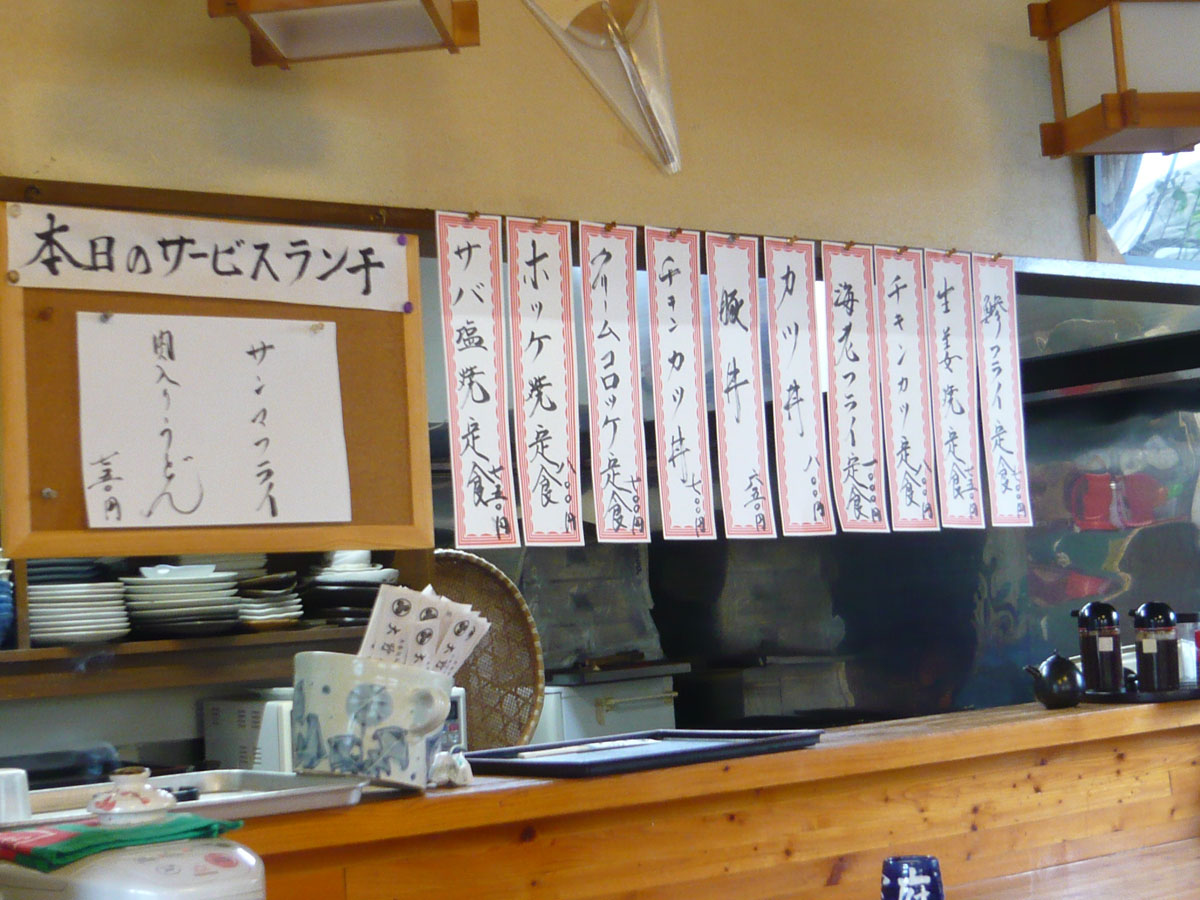 本日のサービスランチ
サンマフライ
肉入りうどん
七五〇円
鯵フライ定食 七〇〇円
生姜焼定食 七五〇円
チキンカツ定食 八〇〇円
海老フライ定食 一〇〇〇円
カツ丼 八〇〇円
豚丼 六五〇円
チキンカツ丼 七〇〇円
クリームコロッケ定食 七〇〇円
ホッケ焼定食 八〇〇円
サバ塩焼定食 七五〇円